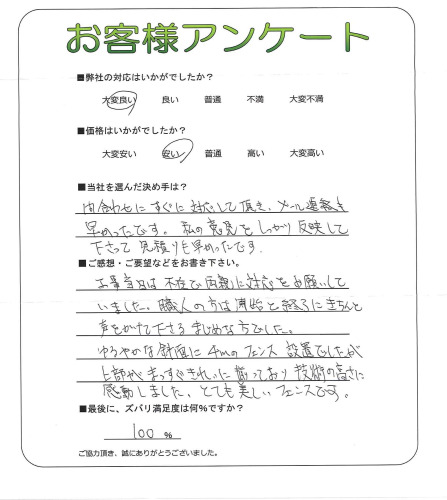 お客様アンケート
■弊社の対応はいかがでしたか?
大変良い 良い 普通 不満 大変不満
■価格はいかがでしたか?
大変安い 安い 普通 高い 大変高い
■当社を選んだ決め手は?
問合わせにすぐに対応して頂き、メール連絡も
早かったです。私の意見をしっかり反映して
下さって見積りも早かったです.
■ご感想・ご要望などをお書き下さい。
工事当日は不在で両親に対応をお願いして
いました。職人の方は開始と終了にきちんと
声をかけて下さるまじめな方でした。
ゆるやかな斜面に4mのフェンス設置でしたが
上部がまっすぐきれいに揃っており技術の高さに
感動しました。とても美しいフェンスです。
■最後に、ズバリ満足度は何%ですか?
100 %
ご協力頂き、誠にありがとうございました。